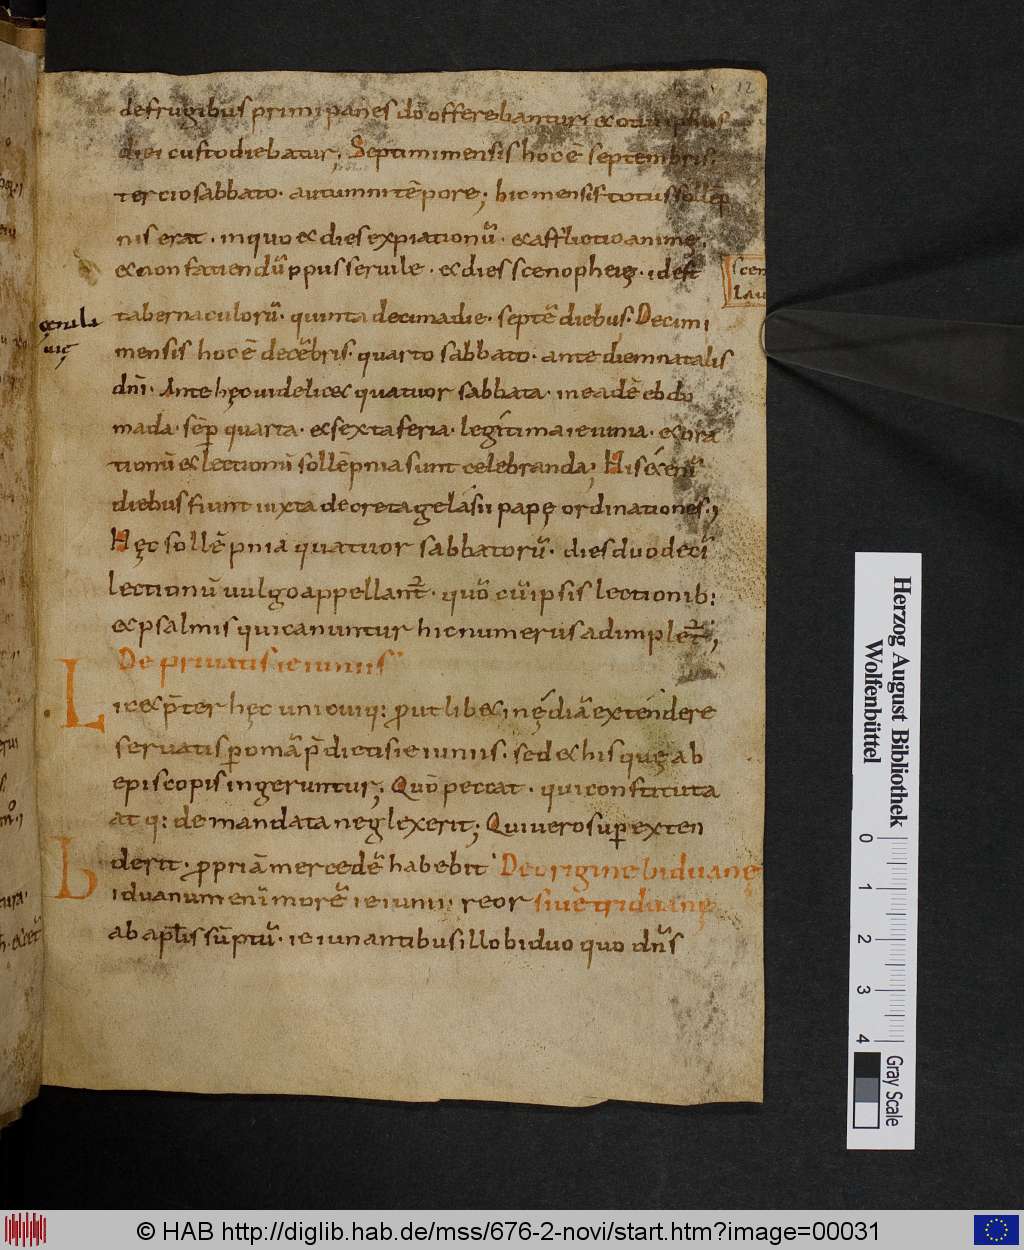 12
de frugibus primi panes dō offerebantur; & octauus
diei custodiebatur; Septimi mensis hoc ē septembris;
tercio sabbato· autumni tēpore; hic mensis totus sollēp
nis erat· in quo & dies expiationū· & afflictio animę·
& non faciendū ppus seruile· & dies scenophęię· id est
scen
tabernaculorū· quinta decima die· septē diebus· Decimi
mensis hoc ē decēbris· quarto sabbato· ante diem natalis
dnī· Ante hęc uidelic& quatuor sabbata· in eadē ebdo
mada· sēp quarta· & sexta feria· legitima ieiunia· & ora
tionū & lectionū sollēpnia sunt celebranda; His &enī
diebus fiunt iuxta decreta gelasii papę ordinationes;
Hęc sollēpnia quatuor sabbatorū· dies duodecī
lectionū uulgo appellant̄· quō cū ipsis lectionib:
& psalmis qui canuntur hic numerus adimplet̄;
De priuatis ieiuniis
Lic& p̄ter hęc unicuiq: prout lib& inędiā extendere
seruatis p omā p̄dictis ieiuniis· sed & his quę ab
episcopis ingeruntur; Quō peccat· qui constituta
atq: demandata neglexerit; Qui uero sup exten
derit· propriā mercedē habebit De origine biduanę
Biduanum enī morē ieiunii reor siue triduanę
ab aplīs sūptū· ieiunantibus illo biduo quo dns̄
Herzog August Bibliothek
Wolfenbüttel
0 1 2 3 4
Gray Scale
© HAB http://diglib.hab.de/mss/676-2-novi/start.htm?image=00031